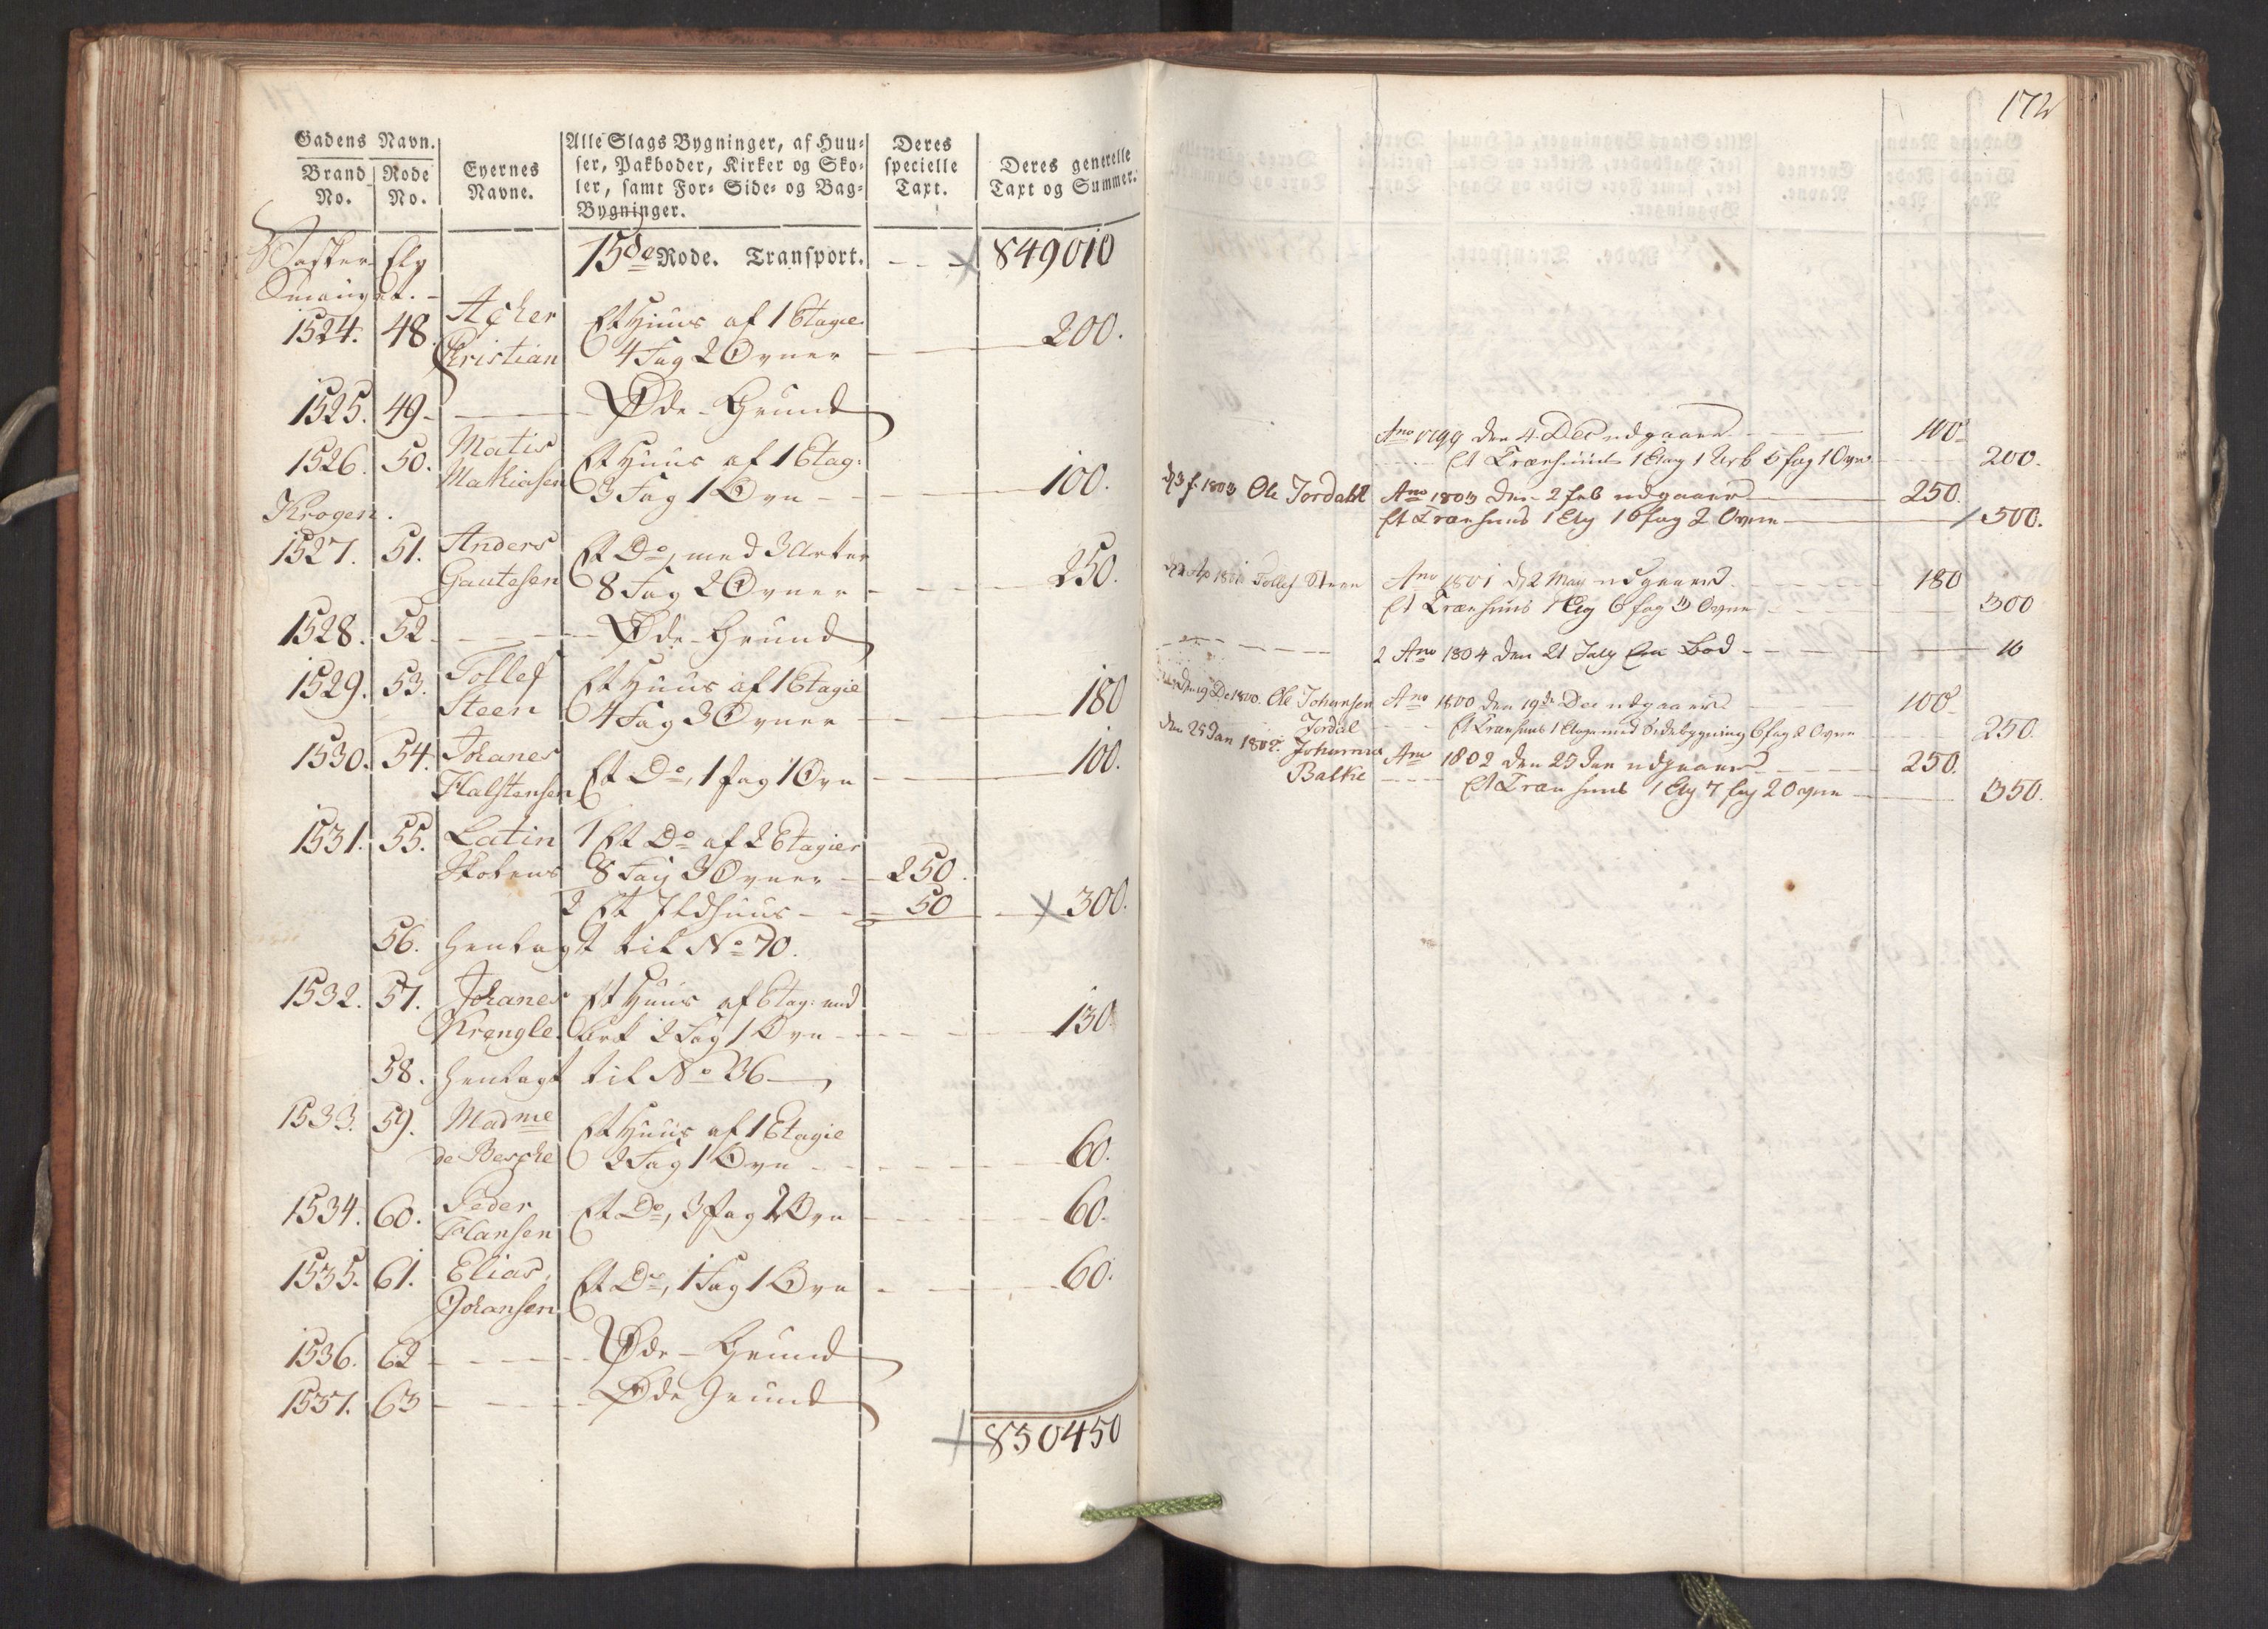 Gadens Navn.
Brand No. Rode No. Eyernes Navne. Alle Slags Bygninger, af Huu-
ser, Pakboder, Kirker og Sko-
ler, samt For- Side- og Bag-
Bygninger. Deres specielle Taxt. Deres generelle Taxt og Summer.
15de Rode. Transport. 849010
Smauget.
1524. 48. Acher Et Huus af 1 Etagie
Christian 4 Fag 2 Ovner 200.
1525. 49 Øde-Grund
1526. 50. Matis Et Huus af 1 Etag:
Mathiasen 3 Fag 1 Ovn 100.
Krogen.
1527. 51. Anders Et Do, med 3 Arker
Gautesen 8 Fag 2 Ovner 250.
1528. 52 Øde-Grund
1529. 53. Tollef Et Huus af 1 Etagie
Steen 4 Fag 3 Ovner 180
1530. 54. Johanes
Halstensen Et Do, 1 fag 1 Ovn 100.
1531. 55. Latin 1 Et Do af 2 Etagier
Skolens 8 Fag 3 Ovner 250.
2 Et Ildhuus 50 300.
56. henlagt til No 70.
1532. 57. Johanes Et Huus af Etag: med
Krengle 2 Fag 1 Ovn 130.
58. henlagt til No 36
1533. 59. Madme Et Huus af 1 Etagie
de Besche 2 Fag 1 Ovn 60.
1534. 60. Peder Et Do, 3 fag 1 Ovn 60.
Hansen
1535. 61. Elias Et Do, 1 Fag 1 Ovn 60.
Johansen
1536. 62 Øde-Grund
1537. 63 Øde Grund
850450
172
Ano 1799 den 4 Dec udgaaer 100
Et Træehuus 1 Etag 1 Ark 6 fag 1 Ovn 200.
d 3 f. 1803 Ole Jordahl Ano 1803 den 2 feb udgaaer 250.
Et Træehuus 1 Etg 16 fag 2 Ovne 500.
Tollef Steen Ano 1801 d 2 May udgaaer 180
Et Træehuus 1 Etg 6 fag 3 Ovne 300
2 Ano 1804 den 21 July En Bod 10
den 19 De 1800. Ole Johansen Ano 1800 den 19de Dec udgaaer 100
Jordal Et Træehuus 1 Etage med Sidebygning 6 fag 2 Ovne 250.
den 25 Jan 1802. Johanna Ano 1802 den 25 Jan udgaaer 250.
Balke Et Træehuus 1 Etg 7 fag 2 Ovne 350.